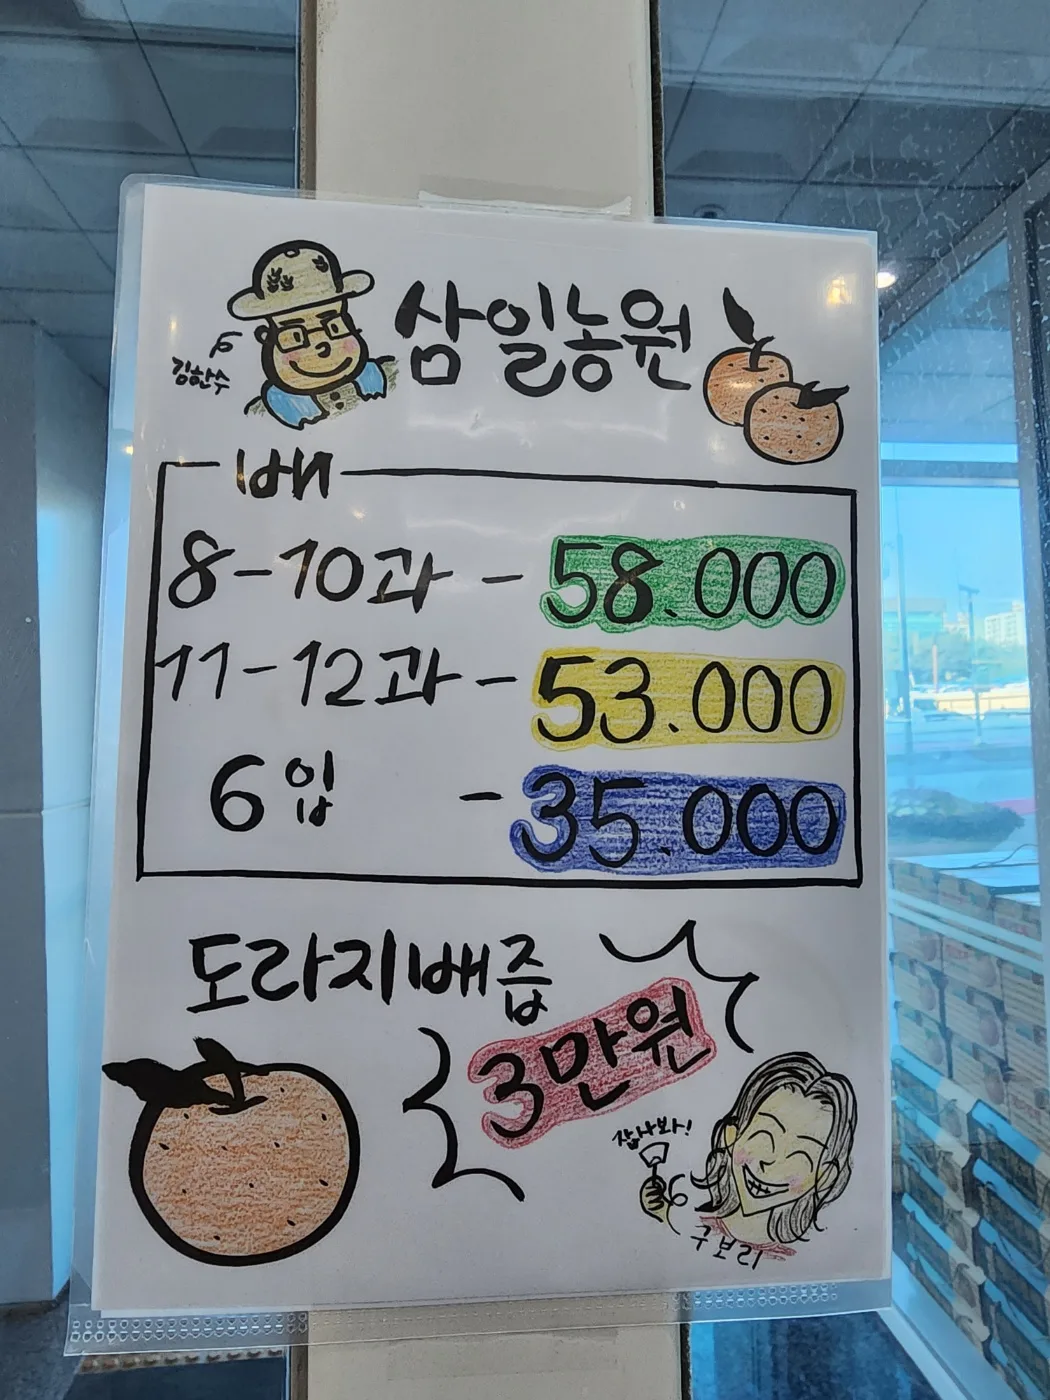 삼일농원
김한수
배
8-10과 - 58.000
11-12과 - 53.000
6입 - 35.000
도라지배즙
3만원
잡사봐!
구보리